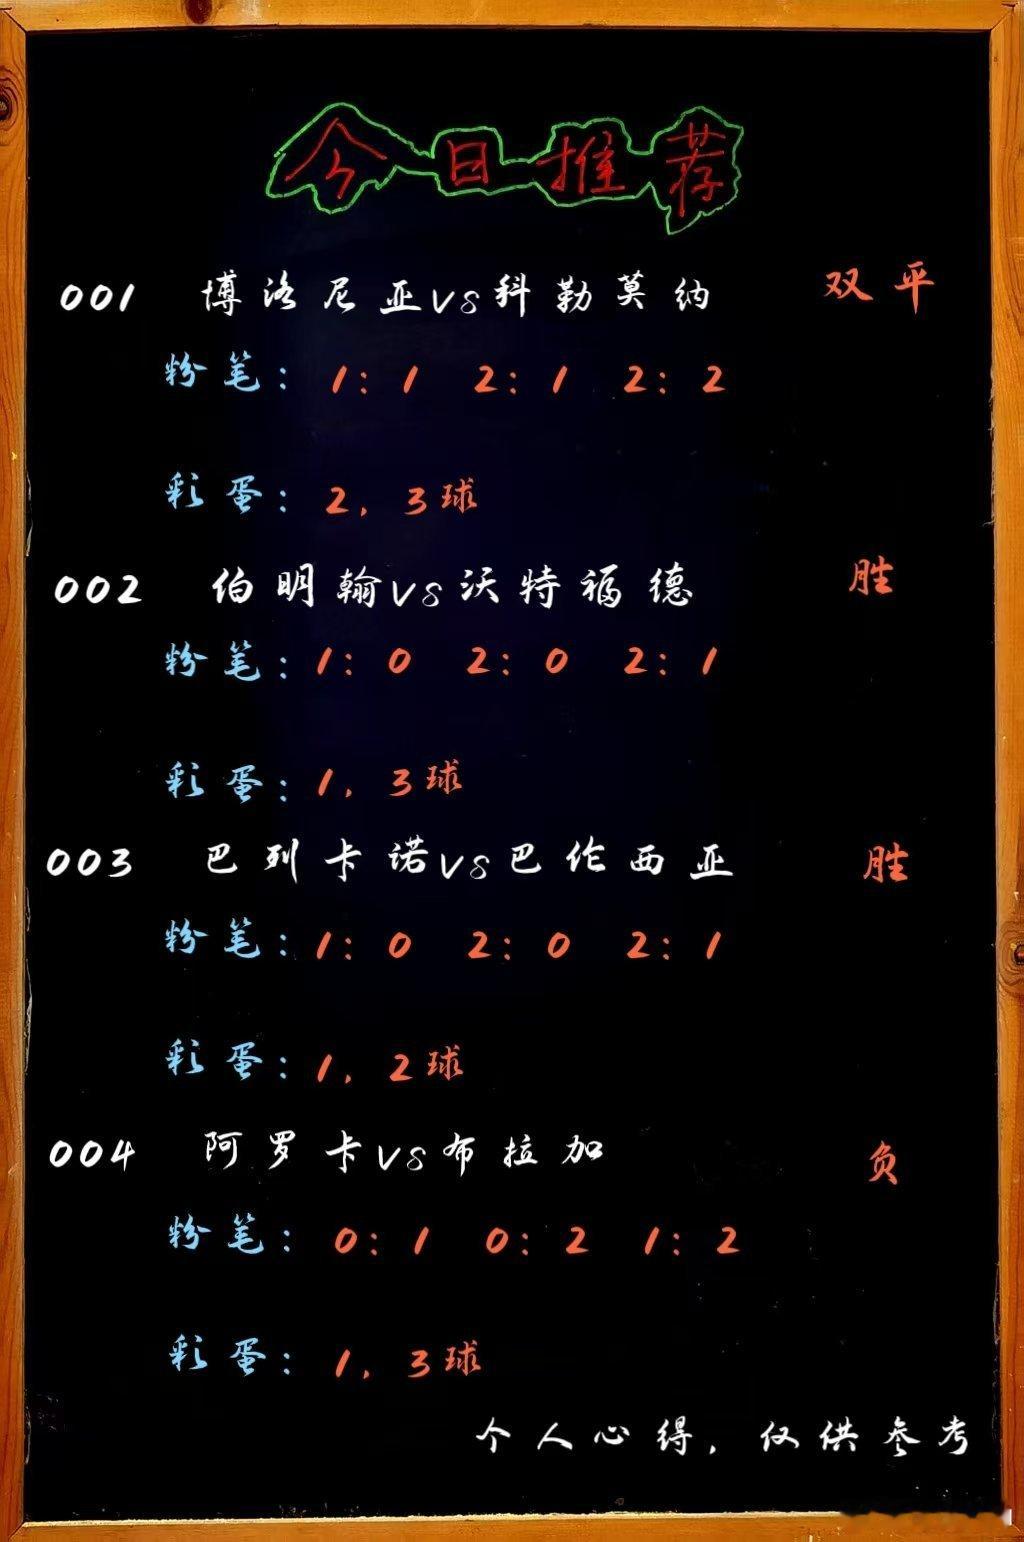 今日推荐
001 博洛尼亚vs科勒莫纳 双平
粉笔：1：1 2：1 2：2
彩蛋：2，3球
002 伯明翰vs沃特福德 胜
粉笔：1：0 2：0 2：1
彩蛋：1，3球
003 巴列卡诺vs巴伦西亚 胜
粉笔：1：0 2：0 2：1
彩蛋：1，2球
004 阿罗卡vs布拉加 负
粉笔：0：1 0：2 1：2
彩蛋：1，3球
个人心得，仅供参考